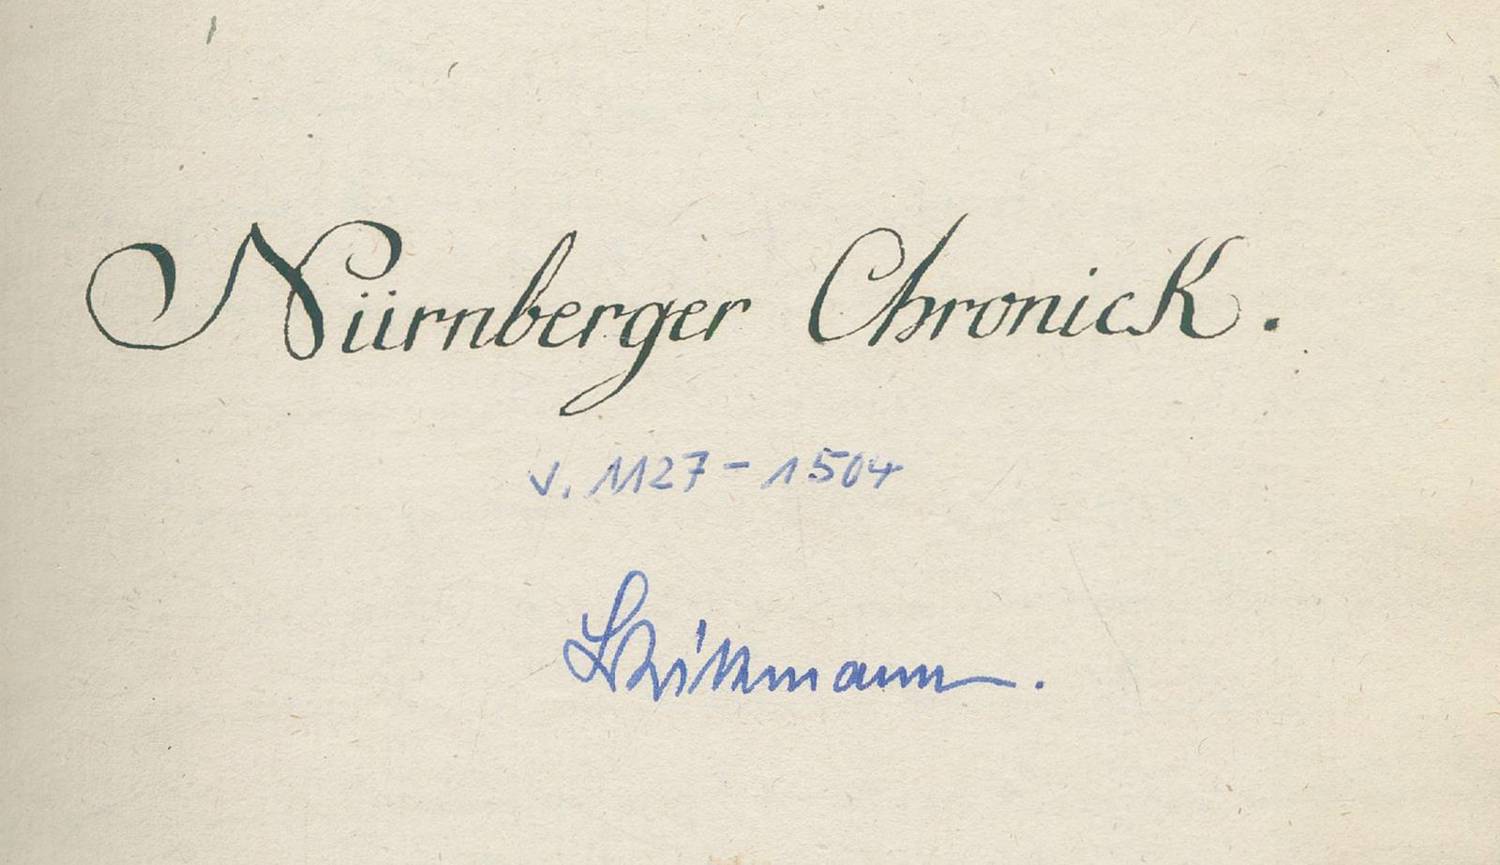 Nürnberger Chronick.
v. 1127 - 1504